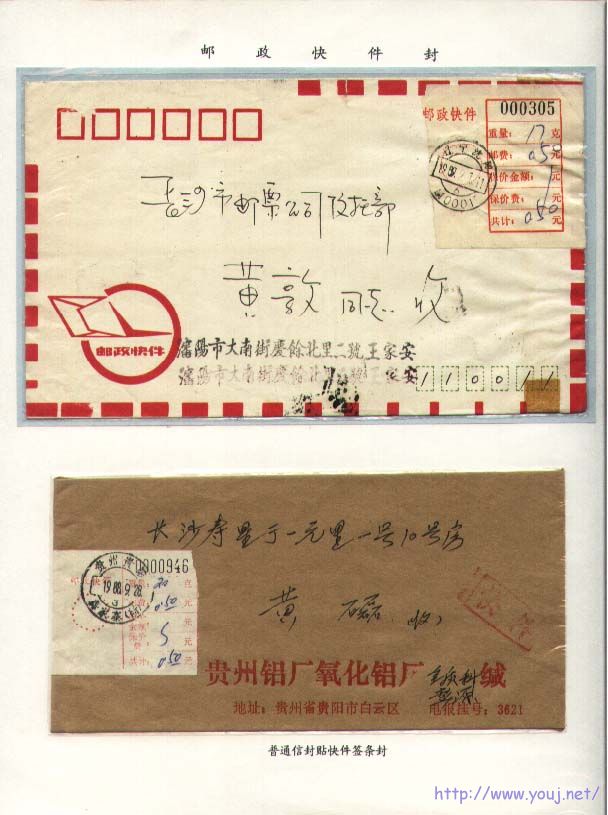 邮政快件封
邮政快件
000305
重量: 17 克
邮费: 0.50 元
保价金额: 元
保价费: 元
共计: 0.50 元
长沙市邮票公司
黄 敦 同志 收
邮政快件
瀋陽市大南街慶餘北里二號王家安
瀋陽市大南街慶餘北里二號王家安
110011
长沙寿星街一元里一号10号房
0000946
贵州
1988.9.28
20 克
0.50 元
元
元
共计: 0.50 元
黄 磊 收
贵州铝厂氧化铝厂 缄
地址: 贵州省贵阳市白云区 电报挂号: 3621
普通信封贴快件签条封
http://www.youj.net/